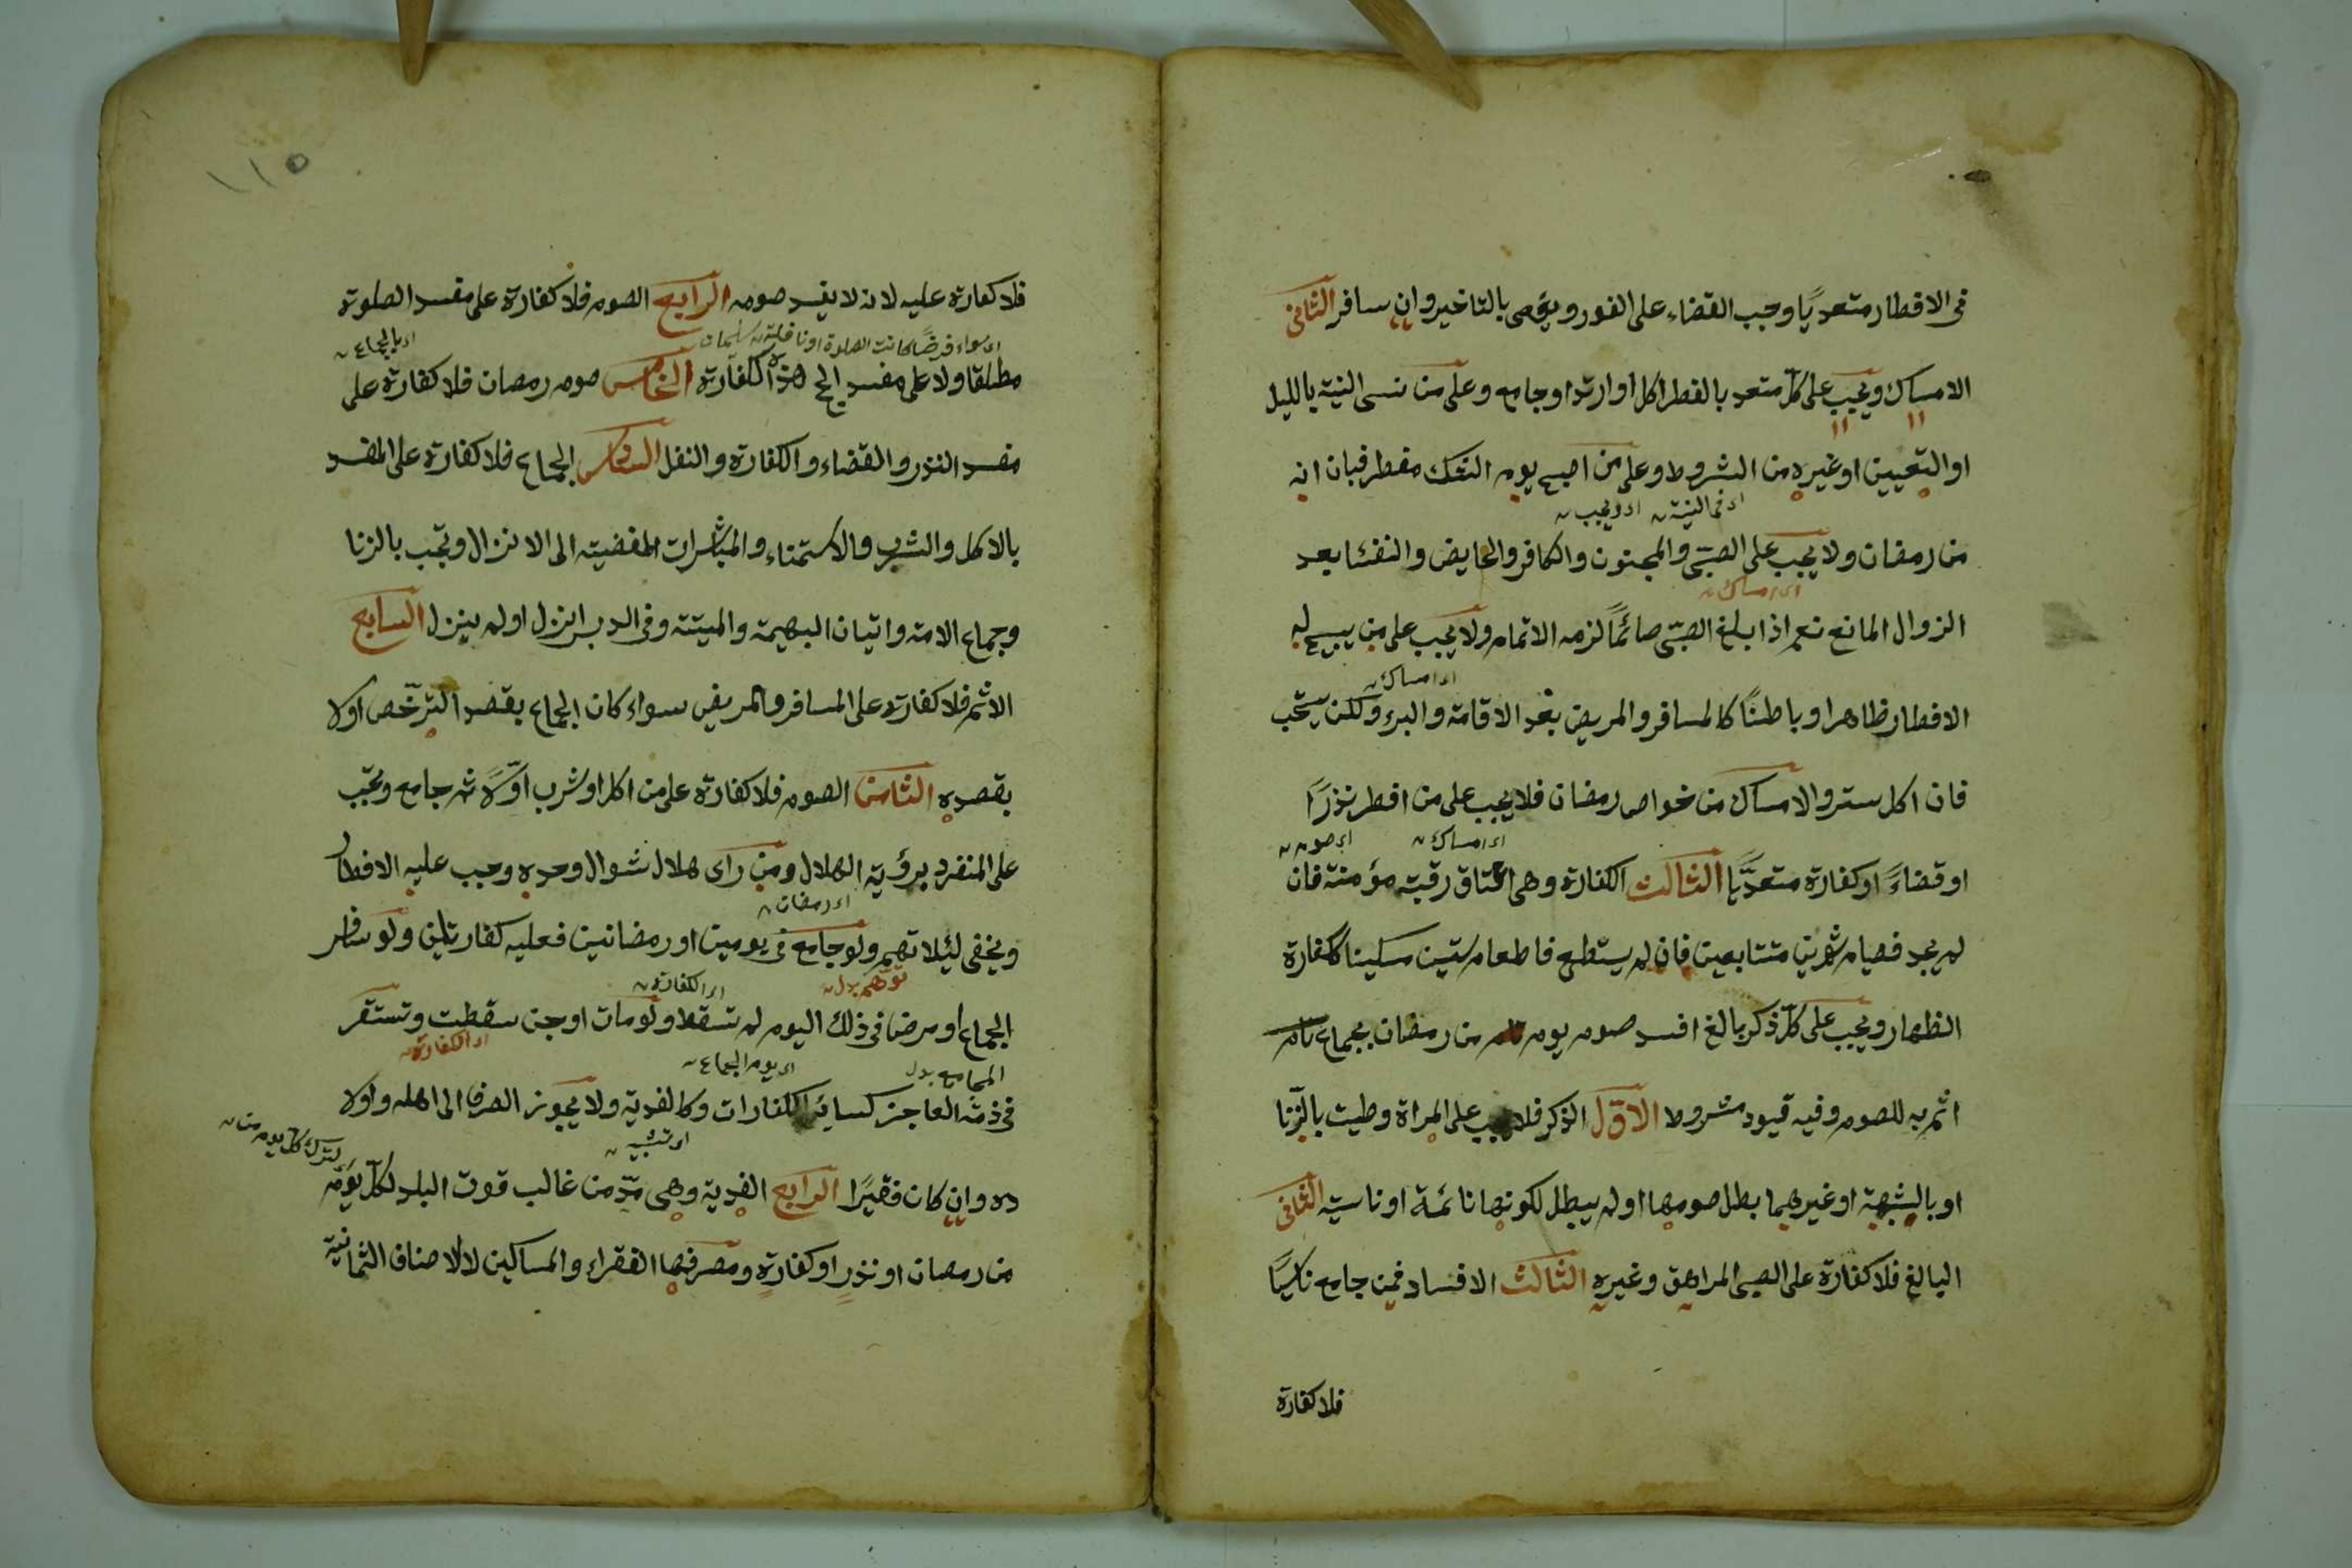 فى الافطار متعديًا وجب القضاء على الفور ويعصى بالتاخير وان سافر الثانى
الامساك ويجب على كل متعد بالفطر اكل او ارتد او جامع وعلى من نسى النية بالليل
او التعيين او غيره من الشروط وعلى من اصبح يوم الشك مفطر فبان انه
اى فى النية اى ويجب
من رمضان ولا يجب على الصبى والمجنون والكافر والحايض والنفسا بعد
اى امساك
الزوال المانع نعم اذا بلغ الصبى صائمًا لزمه الاتمام ولا يجب على من يبيح له
اى امساك
الافطار ظاهرا وباطنًا كالمسافر والمريض بعد الاقامة والبرء ولكن يستحب
فان اكل ستر والامساك من خواص رمضان فلا يجب على من افطر نذرًا
اى امساك اى صوم
او قضاءً او كفارة متعديًا الثالث الكفارة وهى اعتاق رقبة مؤمنة فان
لم يجد فصيام شهرين متتابعين فان لم يستطع فاطعام ستين مسكينا ككفارة
الظهار ويجب على كل ذكر بالغ افسد صوم يوم من رمضان بجماع تام
اثم به للصوم وفيه قيود مشروط الاول الذكر فلا يجب على المراة وطيت بالزنا
او بالشبهة او غيرهما بطل صومها او لم يبطل لكونها نائمة او ناسية الثانى
البالغ فلا كفارة على الصبى المراهق وغيره الثالث الافساد فمن جامع ناسيًا
فلا كفارة
١١٥
فلا كفارة عليه لانه لا يفسد صومه الرابع الصوم فلا كفارة على مفسد الصلوة
اى سواء فرضًا كانت الصلوة او نافلة اى بالجماع
مطلقا ولا على مفسد الحج هذه الكفارة الخامس صوم رمضان فلا كفارة على
مفسد النذر والقضاء والكفارة والنفل السادس الجماع فلا كفارة على المفسد
بالاكل والشرب والاستمناء والمباشرات المفضية الى الانزال وتجب بالزنا
وجماع الامة واتيان البهيمة والميتة وفى الدبر انزل او لم ينزل السابع
الاثم فلا كفارة على المسافر والمريض سواء كان الجماع بقصد الترخص او لا
بقصده الثامن الصوم فلا كفارة على من اكل او شرب اولًا ثم جامع وتجب
على المنفرد برؤية الهلال ومن راى هلال شوال وحده وجب عليه الافطار
اى رمضان
ويخفى لئلا تهم ولو جامع فى يومين او رمضانين فعليه كفارتان ولو سافر
توهم بدل اى الكفارة
الجماع او مرضا فى ذلك اليوم لم تسقط ولو مات او جن سقطت وتستقر
المجامع بدل اى يوم الجماع اى الكفارة
فى ذمة العاجز كسائر الكفارات وكالفدية ولا يجوز الصرف الى اهله واولا
اى تشبيه
ده وان كان فقيرًا الرابع الفدية وهى مد من غالب قوت البلد لكل يوم
لترك كل يوم من
من رمضان او نذر او كفارة ومصرفها الفقراء والمساكين لا الاصناف الثمانية